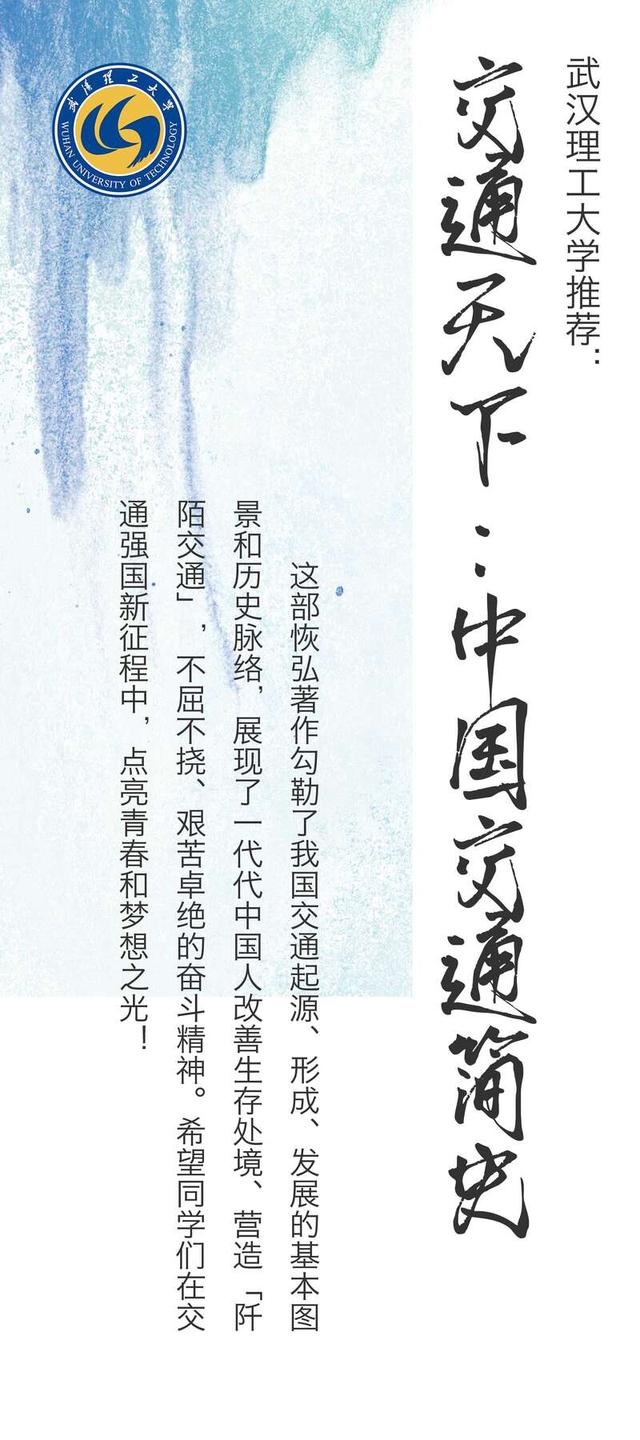 武汉理工大学推荐：
交通天下：中国交通简史
这部恢弘著作勾勒了我国交通起源、形成、发展的基本图
景和历史脉络，展现了一代代中国人改善生存处境、营造「阡
陌交通」，不屈不挠、艰苦卓绝的奋斗精神。希望同学们在交
通强国新征程中，点亮青春和梦想之光！
武汉理工大学
WUHAN UNIVERSITY OF TECHNOLOGY